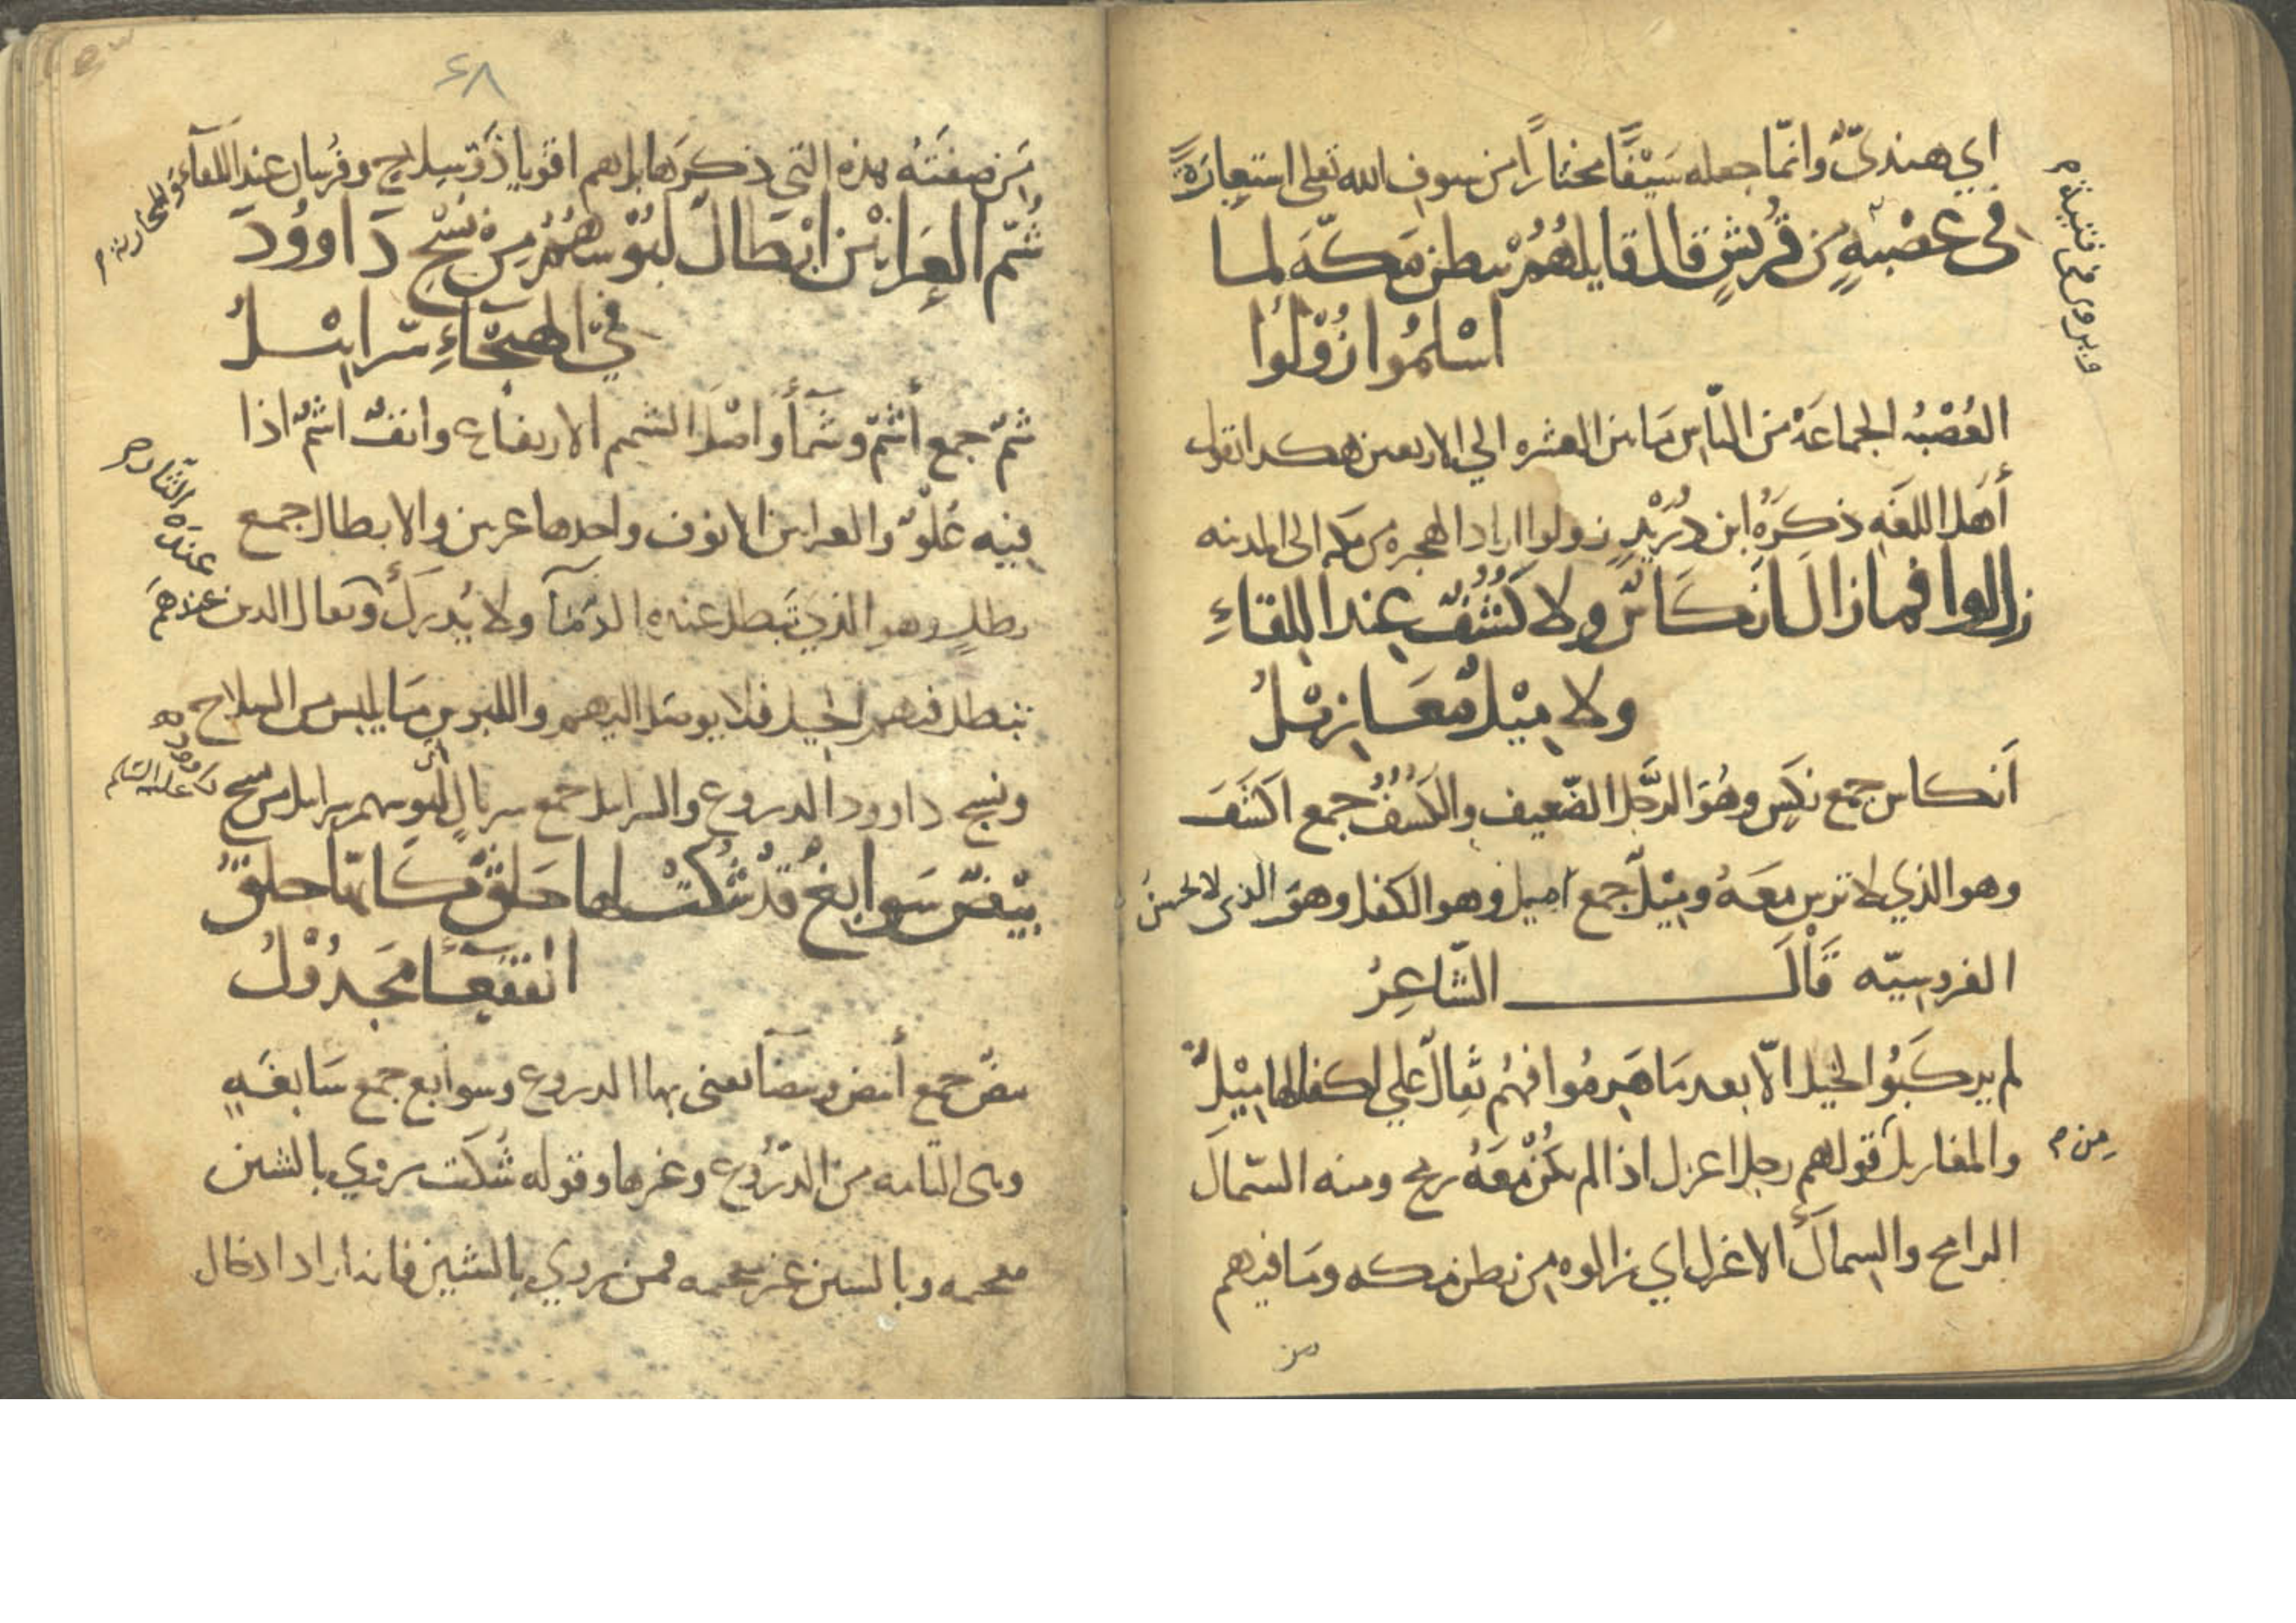 اي هنديّ وانّما جعله سَيْفًا مختارًا من سيوف الله تعلى استعِارَةً
في عُصْبَةٍ من قُريشٍ قال قايلهُمُ ببطن مَكّةَ لما
اسْلمُوا زُوْلُوْا
ويروى في فتية م
العُصْبَةُ الجماعَة من النّاس مَا بين العشره الي الاربعين هكذا تقول
أهل اللغَه ذكرَهُ ابن دُرَيْدٍ زولوا اراد الهجره من مكه الى المدينه
زالوا فما زال انكَاسٌ ولا كُشُفٌ عِند اللقاءِ
ولا مِيْلٌ مَعَازِيْلُ
اَنكاس جمع نكسٍ وهُوَ الرَّجُل الضّعيف والكُشُفُ جمع اكشَفَ
وهو الذي لا ترس معَهُ ومِيْلٌ جمع اميل وهو الكفل وهوَ الذى لا يحسنُ
الفروسِيّه قَالَ الشّاعِرُ
لم يركَبُوا الخيل الّا بعد مَا هَرِمُوا فهُم ثِقالٌ علي اكفالها مِيْلُ
والمعازيل من قولهم رجل اعزل اذا لم يكُنْ معَهُ رمح ومنه السّماكَ
الرامح والسماكُ الاعزل اي زالوا من بطن مكه ومَا فيهم
من
٤٨
مَن صِفَتهُ هذه التي ذكرَها بل هم اقويا ذَوُو سلاحٍ وفُرسان عند اللقآء والمحاربة م
شُمّ العَرانيْن ابْطَالٌ لبُوْسهُمُ مِن نَسْجِ دَاووُدَ
في الهيجَاءِ سَرابيْلُ
شمٌّ جمع أشمّ وشمّآ واصْل الشمم الارتفاع وانفٌ اشمّ اذا
فيه عُلوٌّ والعرانين الانوف واحدها عرنين والابطال جمع
بطلٍ وهو الذي تبطل عنده الدمآ ولا يُدرَكُ
عندَه الثّار م
ويقال الذين عندهم
تبطل فيهم الحيل فلا يوصل اليهم واللبوس مَا يلبس من السلاح
ونسج داوود الدروع والسرابيل جمع سربالٍ اي لبوسهم سرابيل من نسج
داوود عليه السّلم
بِيْضٌ سَوابِغُ قدْ شُكّتْ لها حَلَقٌ كَانّها حلَقُ
القفعَآءِ مَجدُوْلُ
بيضٌ جمع أبيض وبيضآ يعنى بها الدروع وسوابغ جمع سَابغَهٍ
وهى التامه من الدرُوع وغيرها وقوله شُكّت يروي بالشين
معجمه وبالسين غير معجمه فمن يروي بالشين فانه اراد ادخال